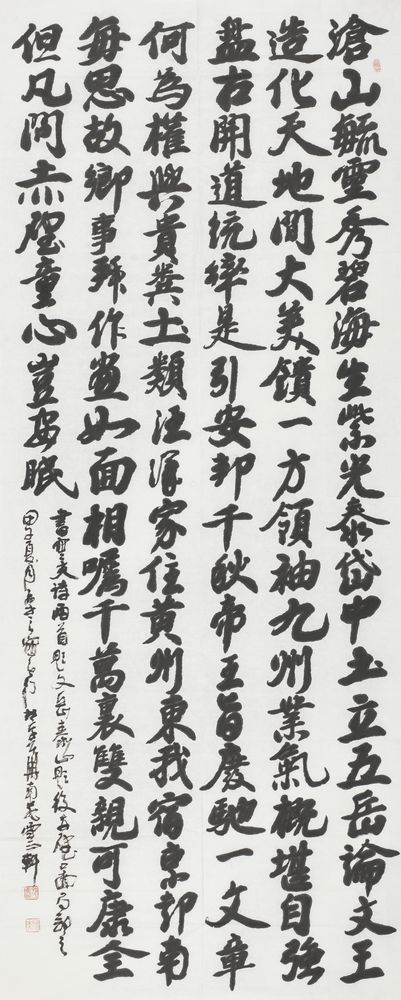 滄山毓靈秀碧海生紫光泰岱中土立五岳論文王
造化天地間大美饋一方領袖九州業氣概堪自強
盤古開道統率是引安邦千秋帝王旨慶馳一文章
何為權與貴糞土類汪洋家住黃州東我宿京都南
每思故鄉事歸作畫如面相囑千萬裏雙親可康全
但凡問赤壁童心豈安眠
詩兩首題文岳泰山題後赤壁